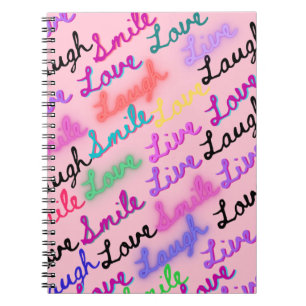 Laugh Smile
Love Live
Smile Laugh Love Laugh
Smile Love Live
Laugh Love Live Laugh
Smile Live Love
Smile Smile
Love Smile Love Laugh Live
Laugh Love Laugh Love